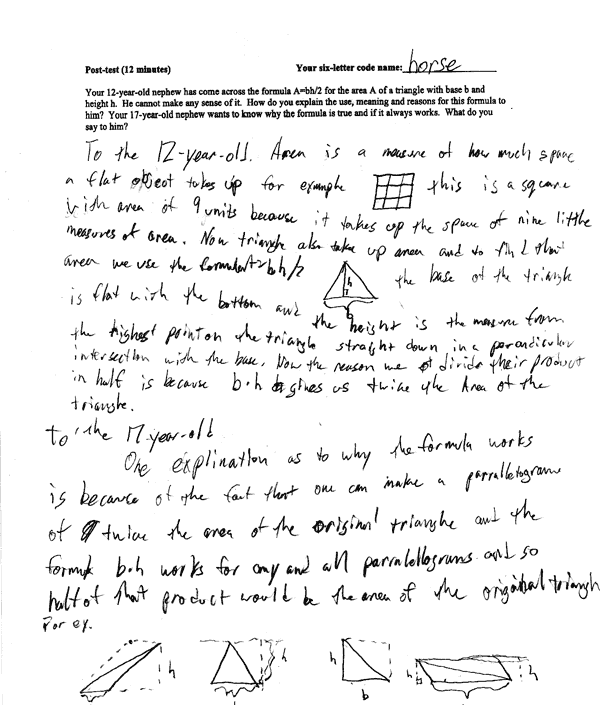 Post-test (12 minutes) Your six-letter code name: horse
Your 12-year-old nephew has come across the formula A=bh/2 for the area A of a triangle with base b and
height h. He cannot make any sense of it. How do you explain the use, meaning and reasons for this formula to
him? Your 17-year-old nephew wants to know why the formula is true and if it always works. What do you
say to him?
To the 12-year-old. Area is a measure of how much space
a flat object takes up for example this is a square
with area of 9 units because it takes up the space of nine little
measures of area. Now triangle also take up area and to find that
area we use the formula A=bh/2 h the base of the triangle
is flat with the bottom and the height is the measure from
the highest point on the triangle straight down in a perpendicular
intersection with the base. Now the reason we divide their product
in half is because b·h gives us twice the Area of the
triangle.
to the 17-year-old
One explination as to why the formula works
is because of the fact that one can make a parralletogram
of twice the area of the original triangle and the
formula b·h works for any and all parralellograms and so
half of that product would be the area of the original triangle
For ex.
h h h b h